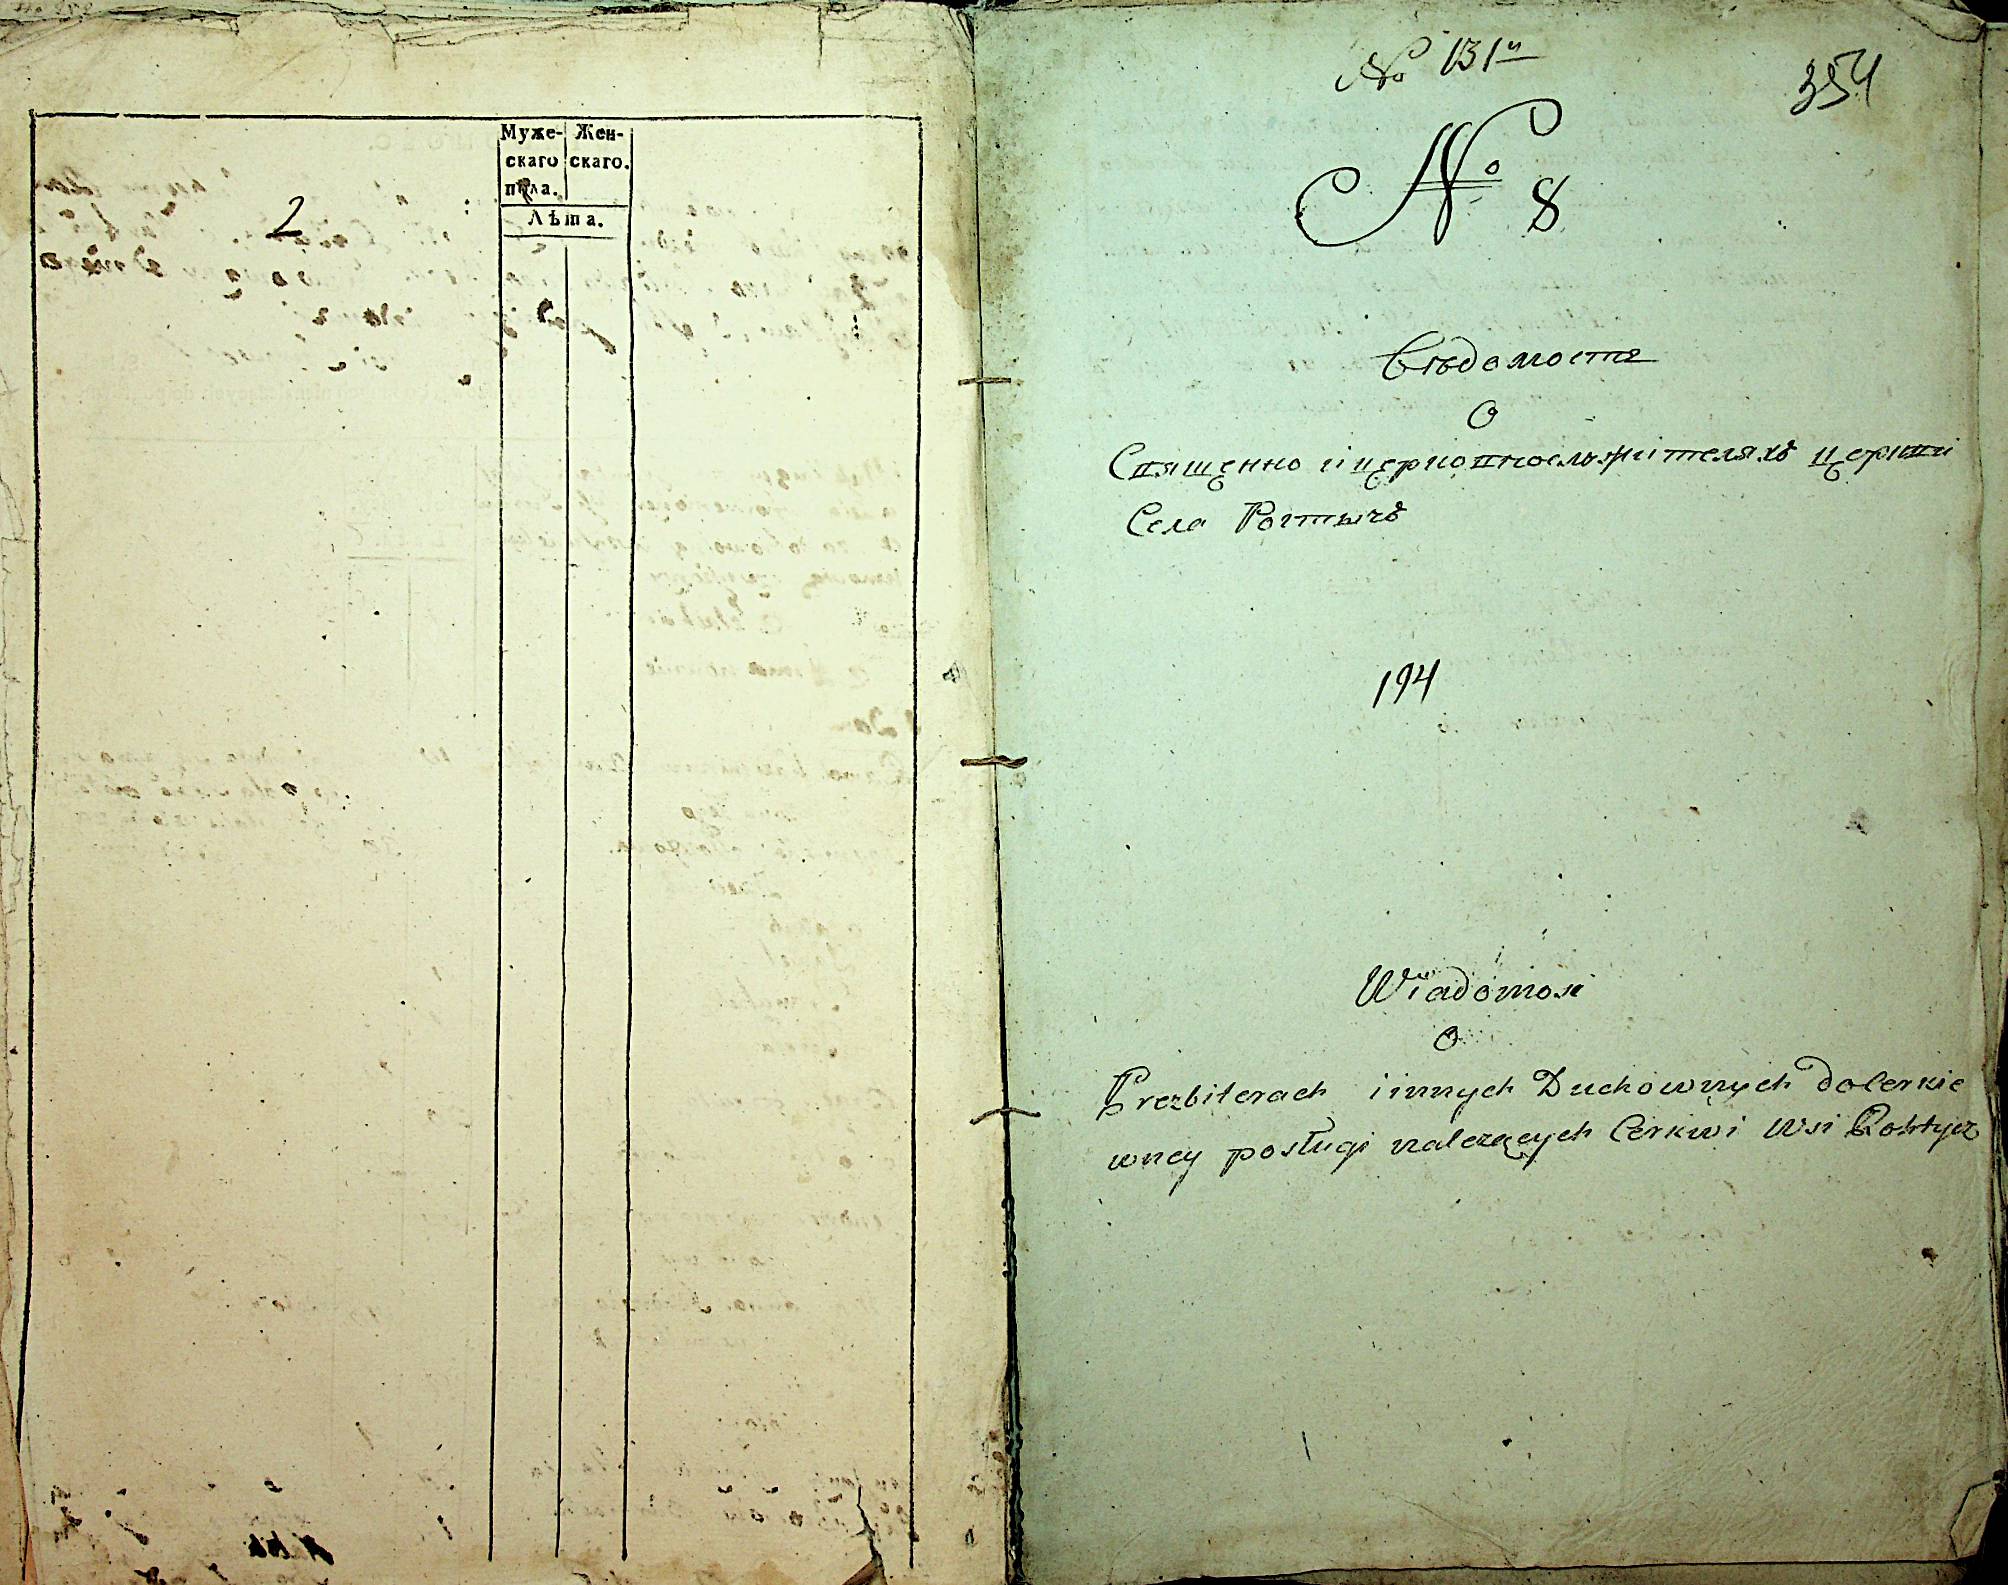 Муже- Жен-
скаго скаго.
пола.
Лѣта.
2
№ 131й
354
№ 8
Вѣдомость
О
Священно и церковнослужителяхъ церкви
Села Рогтычъ
194
Wiadomość
O
Prezbiterach i innych Duchownych do Cerkie
wney posługi należących Cerkwi Wsi Rohtycz